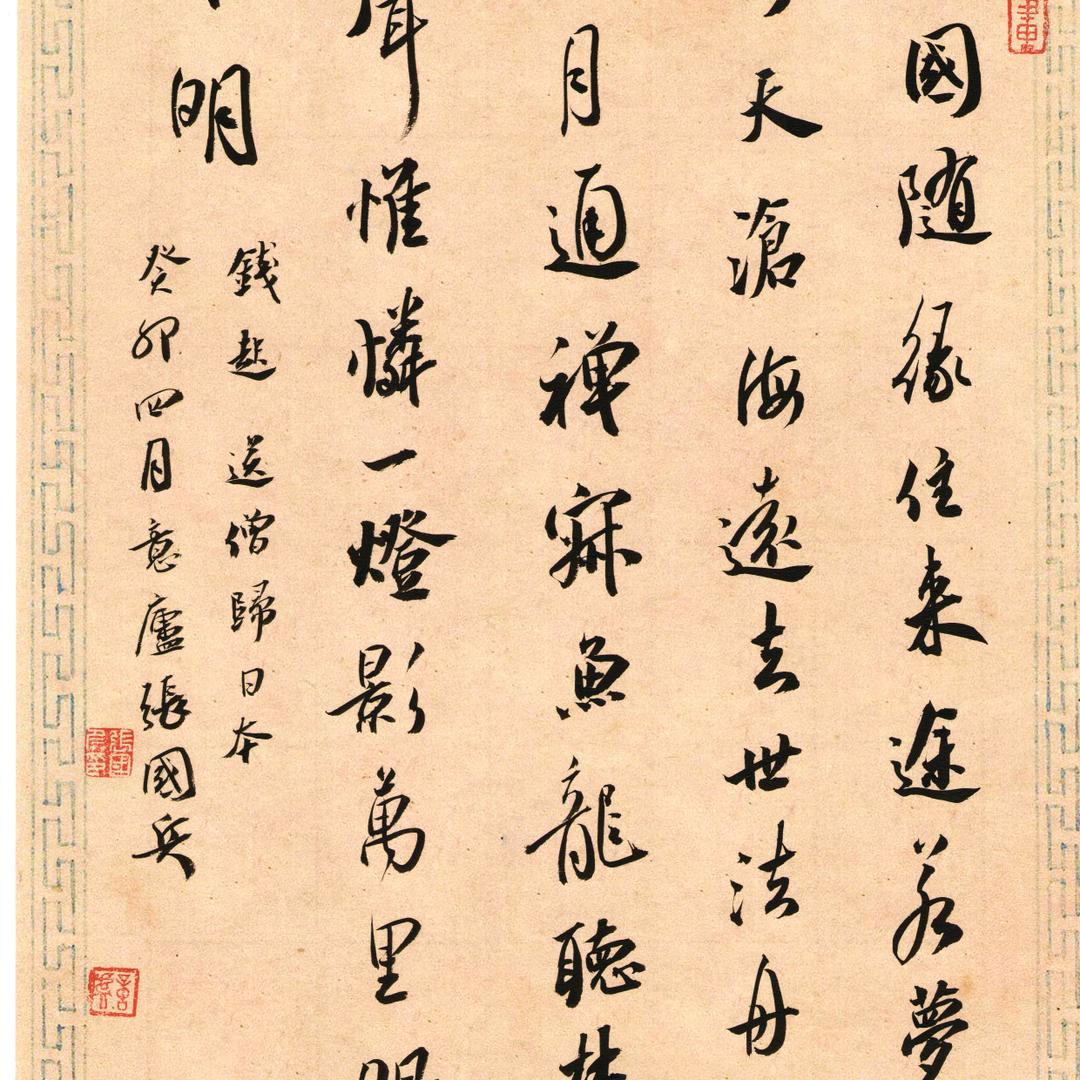 國随緣住来途若夢
天滄海遠去世法舟
月通禅寂魚龍聽
聲惟憐一燈影萬里
明
錢起 送僧歸日本
癸卯四月意廬張國兵